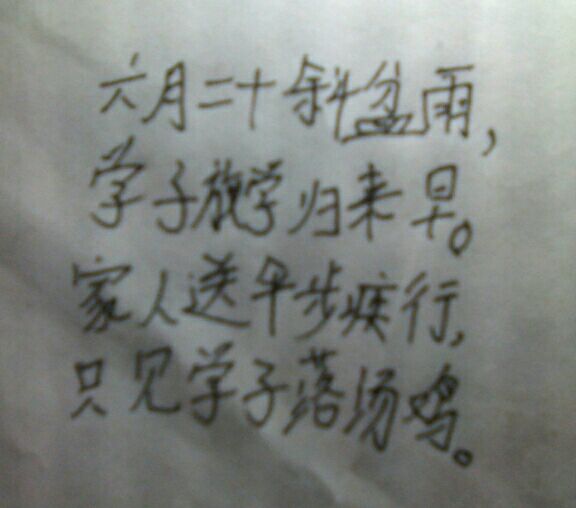 六月二十斜盆雨,
学子放学归来早。
家人送伞步疾行,
只见学子落汤鸡。